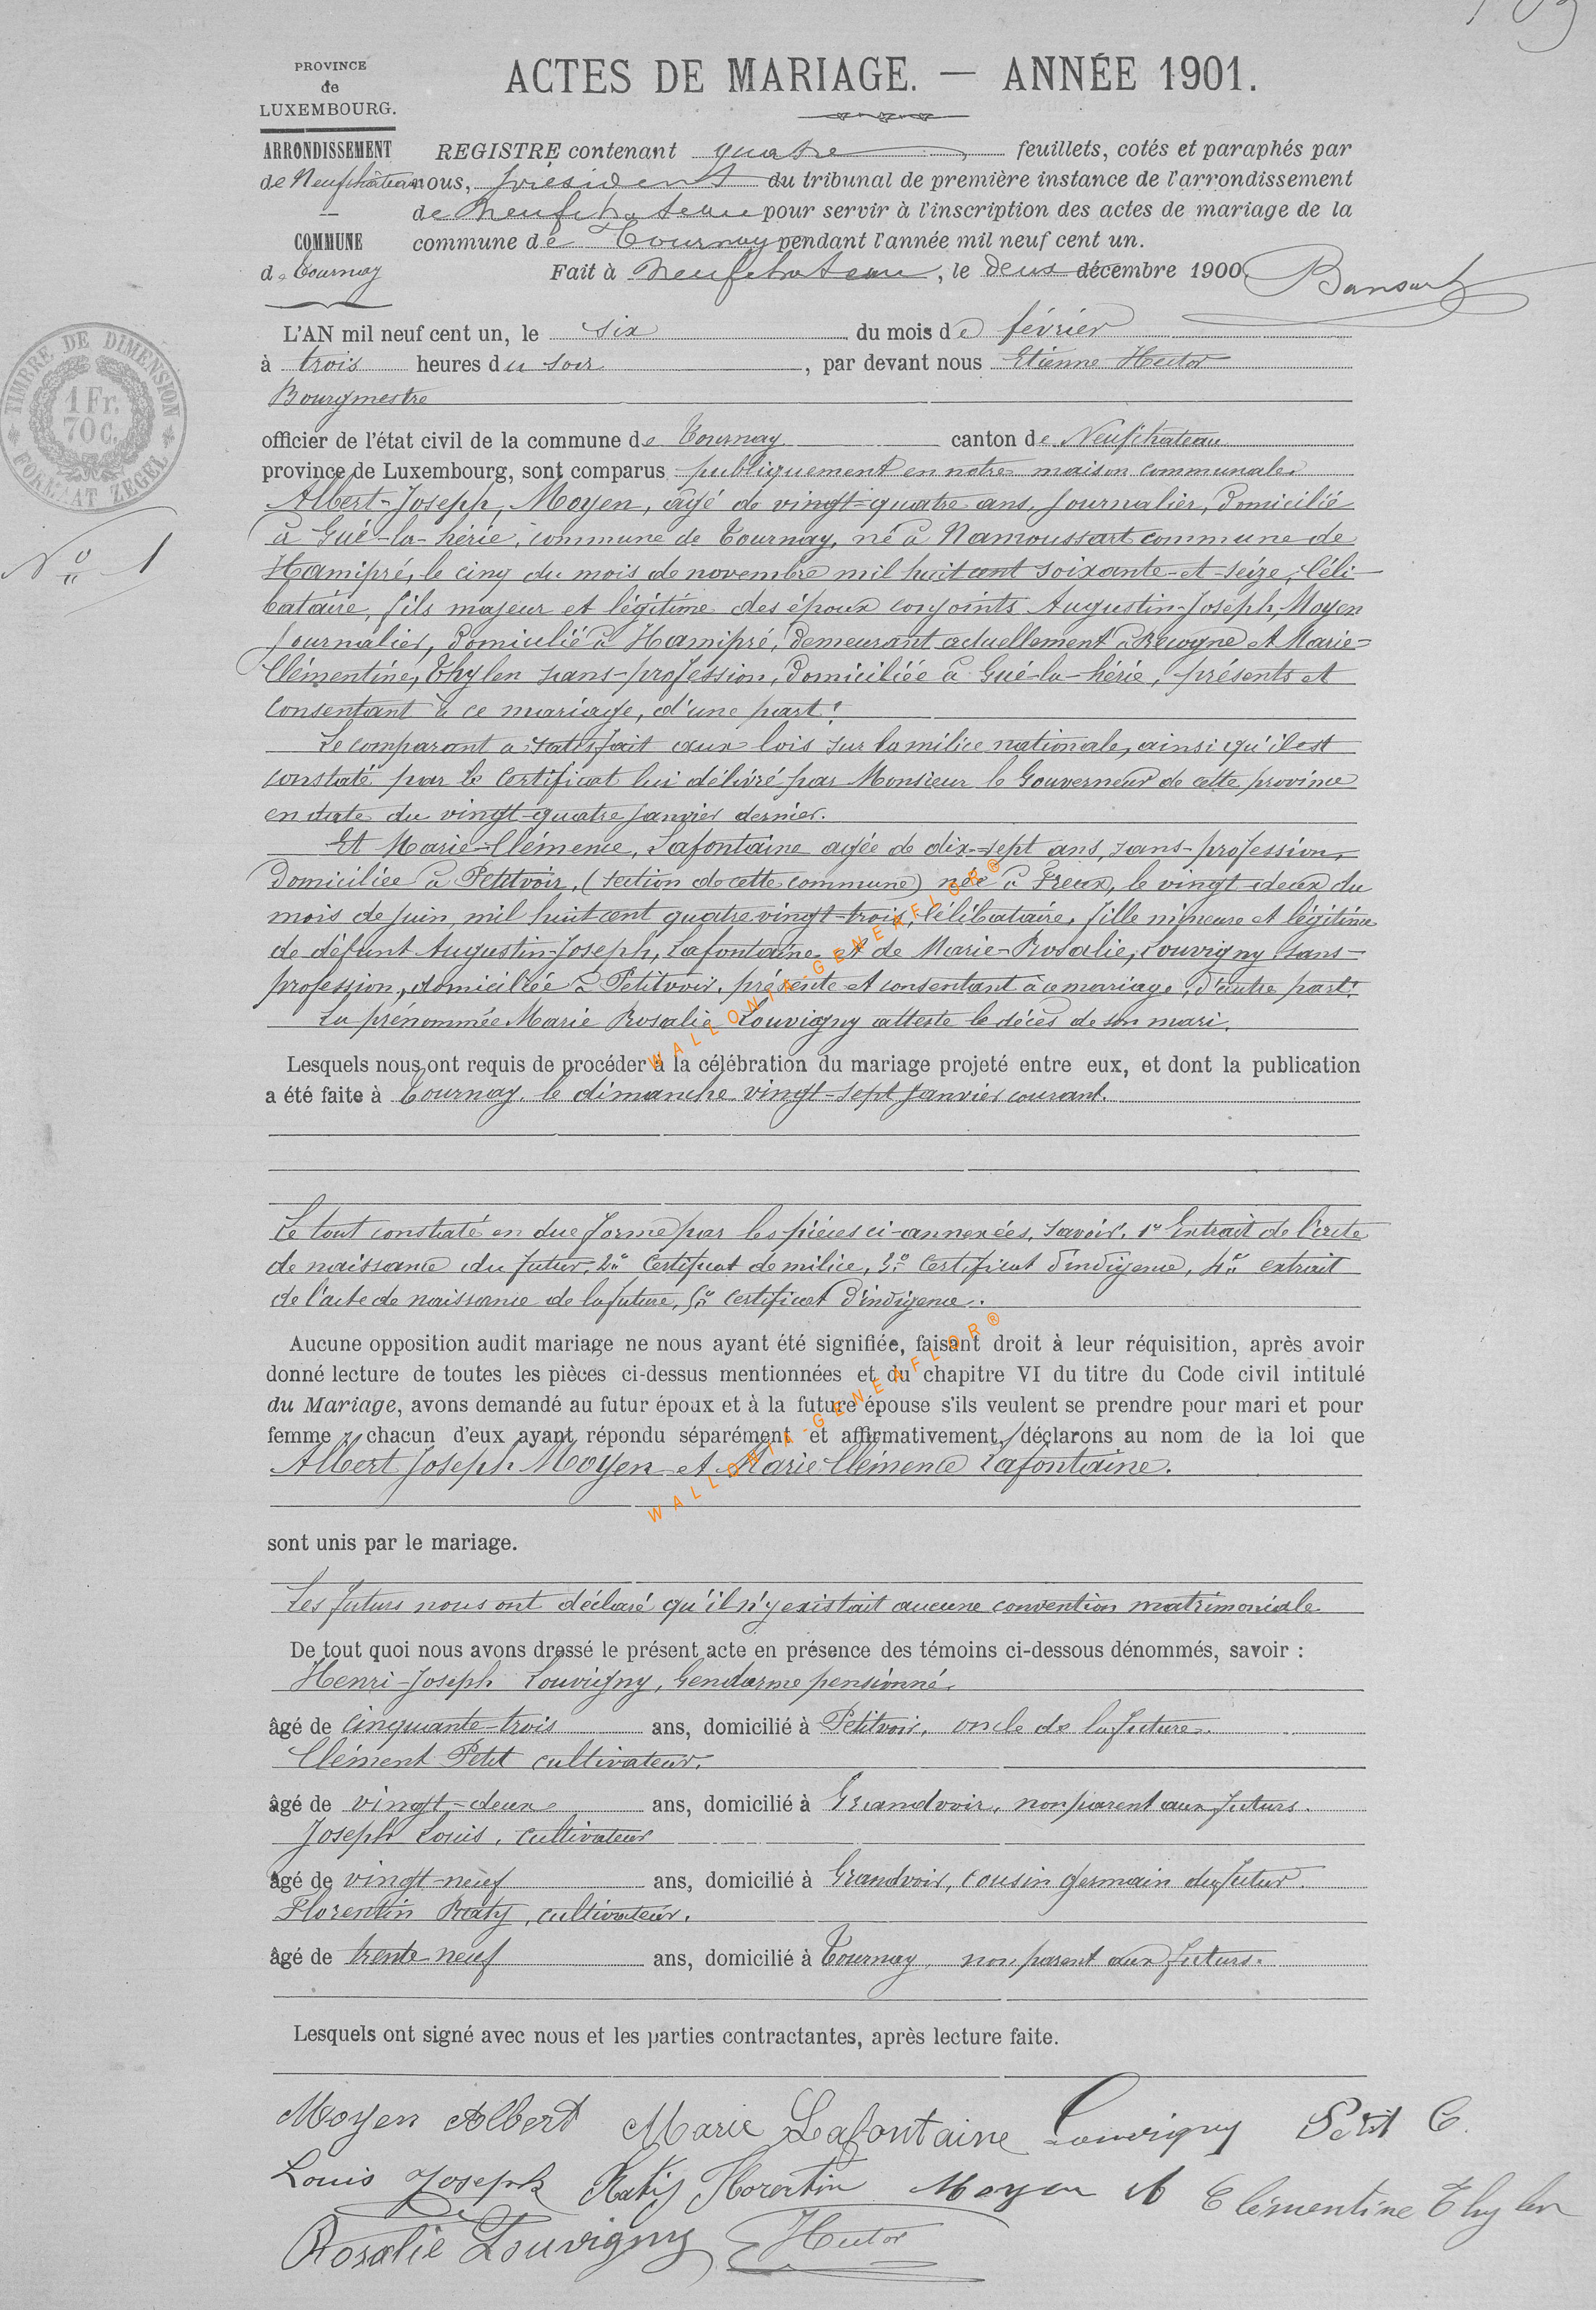 PROVINCE
de
LUXEMBOURG.
ACTES DE MARIAGE. — ANNÉE 1901.
ARRONDISSEMENT
de Neufchâteau
COMMUNE
de Tournay
REGISTRE contenant quatre feuillets, cotés et paraphés par
nous, président du tribunal de première instance de l'arrondissement
de Neufchateau pour servir à l'inscription des actes de mariage de la
commune de Tournay pendant l'année mil neuf cent un.
Fait à Neufchateau, le deux décembre 1900.
TIMBRE DE DIMENSION
1 Fr.
70 C.
FORMAAT ZEGEL
No 1
L'AN mil neuf cent un, le six du mois de février
à trois heures du soir, par devant nous Etienne Hutor
Bourgmestre
officier de l'état civil de la commune de Tournay canton de Neufchateau
province de Luxembourg, sont comparus publiquement en notre maison communale.
Albert-Joseph, Moyen, agé de vingt-quatre ans, Journalier, Domicilié
à Gué-la-hérie, commune de Tournay, né à Namoussart commune de
Hamipré, le cinq du mois de novembre mil huit cent soixante-et-seize, Céli-
bataire, fils majeur et légitime des époux conjoints Augustin-Joseph, Moyen
Journalier, Domicilié à Hamipré, Demeurant actuellement à Recogne et Marie-
Clémentine, Thylen sans-profession, Domiciliée à Gué-la-hérie, présents et
Consentant à ce mariage, d'une part!
Le comparant a satisfait aux lois sur la milice nationale, ainsi qu'il est
constaté par le Certificat lui délivré par Monsieur le Gouverneur de cette province
en date du vingt-quatre Janvier dernier.
Et Marie-Clémence, Lafontaine agée de dix-sept ans, sans-profession,
Domiciliée à Petitvoir, (section de cette commune) née à Freux, le vingt-deux du
mois de Juin mil huit cent quatre vingt-trois, Célibataire, fille mineure et légitime
de défunt Augustin-Joseph, Lafontaine et de Marie-Rosalie, Louvigny sans-
profession, domiciliée à Petitvoir, présente et consentant à ce mariage, d'autre part!
La prénommée Marie Rosalie Louvigny atteste le décès de son mari.
Lesquels nous ont requis de procéder à la célébration du mariage projeté entre eux, et dont la publication
a été faite à Tournay, le dimanche vingt-sept Janvier courant.
Le tout constaté en due forme par les pièces ci-annexées, savoir. 1° Extrait de l'acte
de naissance du futur, 2° Certificat de milice, 3° Certificat d'indigence, 4° extrait
de l'acte de naissance de la future, 5° certificat d'indigence.
Aucune opposition audit mariage ne nous ayant été signifiée, faisant droit à leur réquisition, après avoir
donné lecture de toutes les pièces ci-dessus mentionnées et du chapitre VI du titre du Code civil intitulé
du Mariage, avons demandé au futur époux et à la future épouse s'ils veulent se prendre pour mari et pour
femme ; chacun d'eux ayant répondu séparément et affirmativement, déclarons au nom de la loi que
Albert Joseph Moyen et Marie Clémence Lafontaine.
WALLONIA-GENEAFLOR®
WALLONIA-GENEAFLOR®
sont unis par le mariage.
Les futurs nous ont déclaré qu'il n'y existait aucune convention matrimoniale
De tout quoi nous avons dressé le présent acte en présence des témoins ci-dessous dénommés, savoir :
Henri-Joseph Louvigny, Gendarme pensionné,
âgé de Cinquante-trois ans, domicilié à Petitvoir, oncle de la future.
Clément Petit cultivateur,
âgé de vingt-deux ans, domicilié à Grandvoir, non parent aux futurs.
Joseph Louis, Cultivateur
âgé de vingt-neuf ans, domicilié à Grandvoir, cousin germain du futur.
Florentin Raty, cultivateur,
âgé de trente-neuf ans, domicilié à Tournay, non parent aux futurs.
Lesquels ont signé avec nous et les parties contractantes, après lecture faite.
Moyen Albert Marie Lafontaine Louvigny Petit C.
Louis Joseph Raty Florentin Moyen A Clémentine Thylen
Rosalie Louvigny Hutor